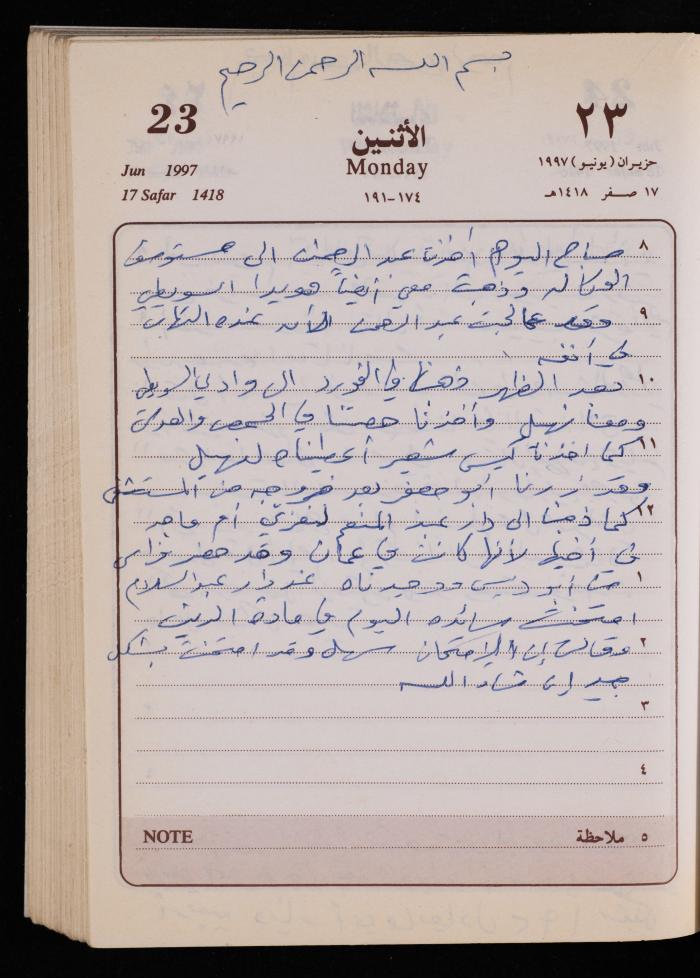 بسم الله الرحمن الرحيم
23 ٢٣
الأثنين
Jun 1997 Monday حزيران (يونيو) ١٩٩٧
17 Safar 1418 ١٧٤-١٩١ ١٧ صفر ١٤١٨هـ
٨ صباح اليوم أخذنا عبد الرحمن الى مستوصف
الوكاله وذهبت معي أيضاً هويدا السويطي
٩ وقد عالجت عبد الرحمن لأن عنده التهاب
في أنفه
١٠ بعد الظهر ذهبنا في الفورد الى وادي السويطي
ومعنا نهيل وأخذنا حصتنا في الحمص والعدس
١١ كما اخذنا كيس شعير أعطيناه لنهيل
وقد زرنا أبو جعفر بعد خروجه من المستشفى
١٢ كما ذهبنا الى دار عبد المنعم لنعزي أم ماجد
في أخيها لأنها كانت في عمان وقد حضر فراس
١ من أبو ديس ووجدناه عند دار عبد السلام
امتحنت سائده اليوم في مادة الدين
٢ وقالت إن الامتحان سهل وقد امتحنت بشكل
جيد إن شاء الله
٣
٤
NOTE ٥ ملاحظة